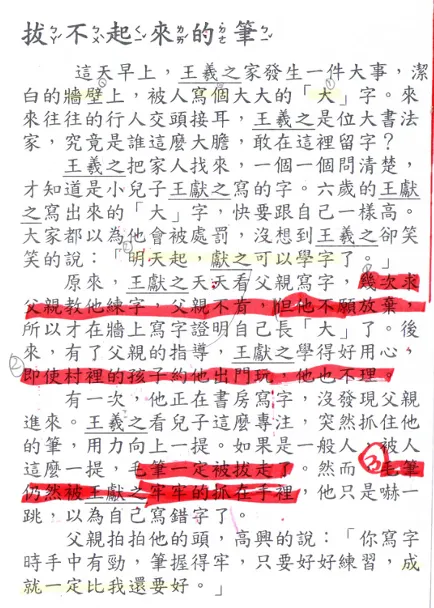 拔不起來的筆
ㄅㄚˊ ㄅㄨˋ ㄑㄧˇ ㄌㄞˊ ㄉㄜ˙ ㄅㄧˇ
這天早上，王羲之家發生一件大事，潔
白的牆壁上，被人寫個大大的「大」字。來
來往往的行人交頭接耳，王羲之是位大書法
家，究竟是誰這麼大膽，敢在這裡留字？
王羲之把家人找來，一個一個問清楚，
才知道是小兒子王獻之寫的字。六歲的王獻
之寫出來的「大」字，快要跟自己一樣高。
大家都以為他會被處罰，沒想到王羲之卻笑
笑的說：「明天起，獻之可以學字了。」
原來，王獻之天天看父親寫字，幾次求
父親教他練字，父親不肯，但他不願放棄，
所以才在牆上寫字證明自己長「大」了。後
來，有了父親的指導，王獻之學得好用心，
即使村裡的孩子約他出門玩，他也不理。
有一次，他正在書房寫字，沒發現父親
進來。王羲之看兒子這麼專注，突然抓住他
的筆，用力向上一提。如果是一般人，被人
這麼一提，毛筆一定被拔走了。然而，毛筆
仍然被王獻之牢牢的抓在手裡，他只是嚇一
跳，以為自己寫錯字了。
父親拍拍他的頭，高興的說：「你寫字
時手中有勁，筆握得牢，只要好好練習，成
就一定比我還要好。」